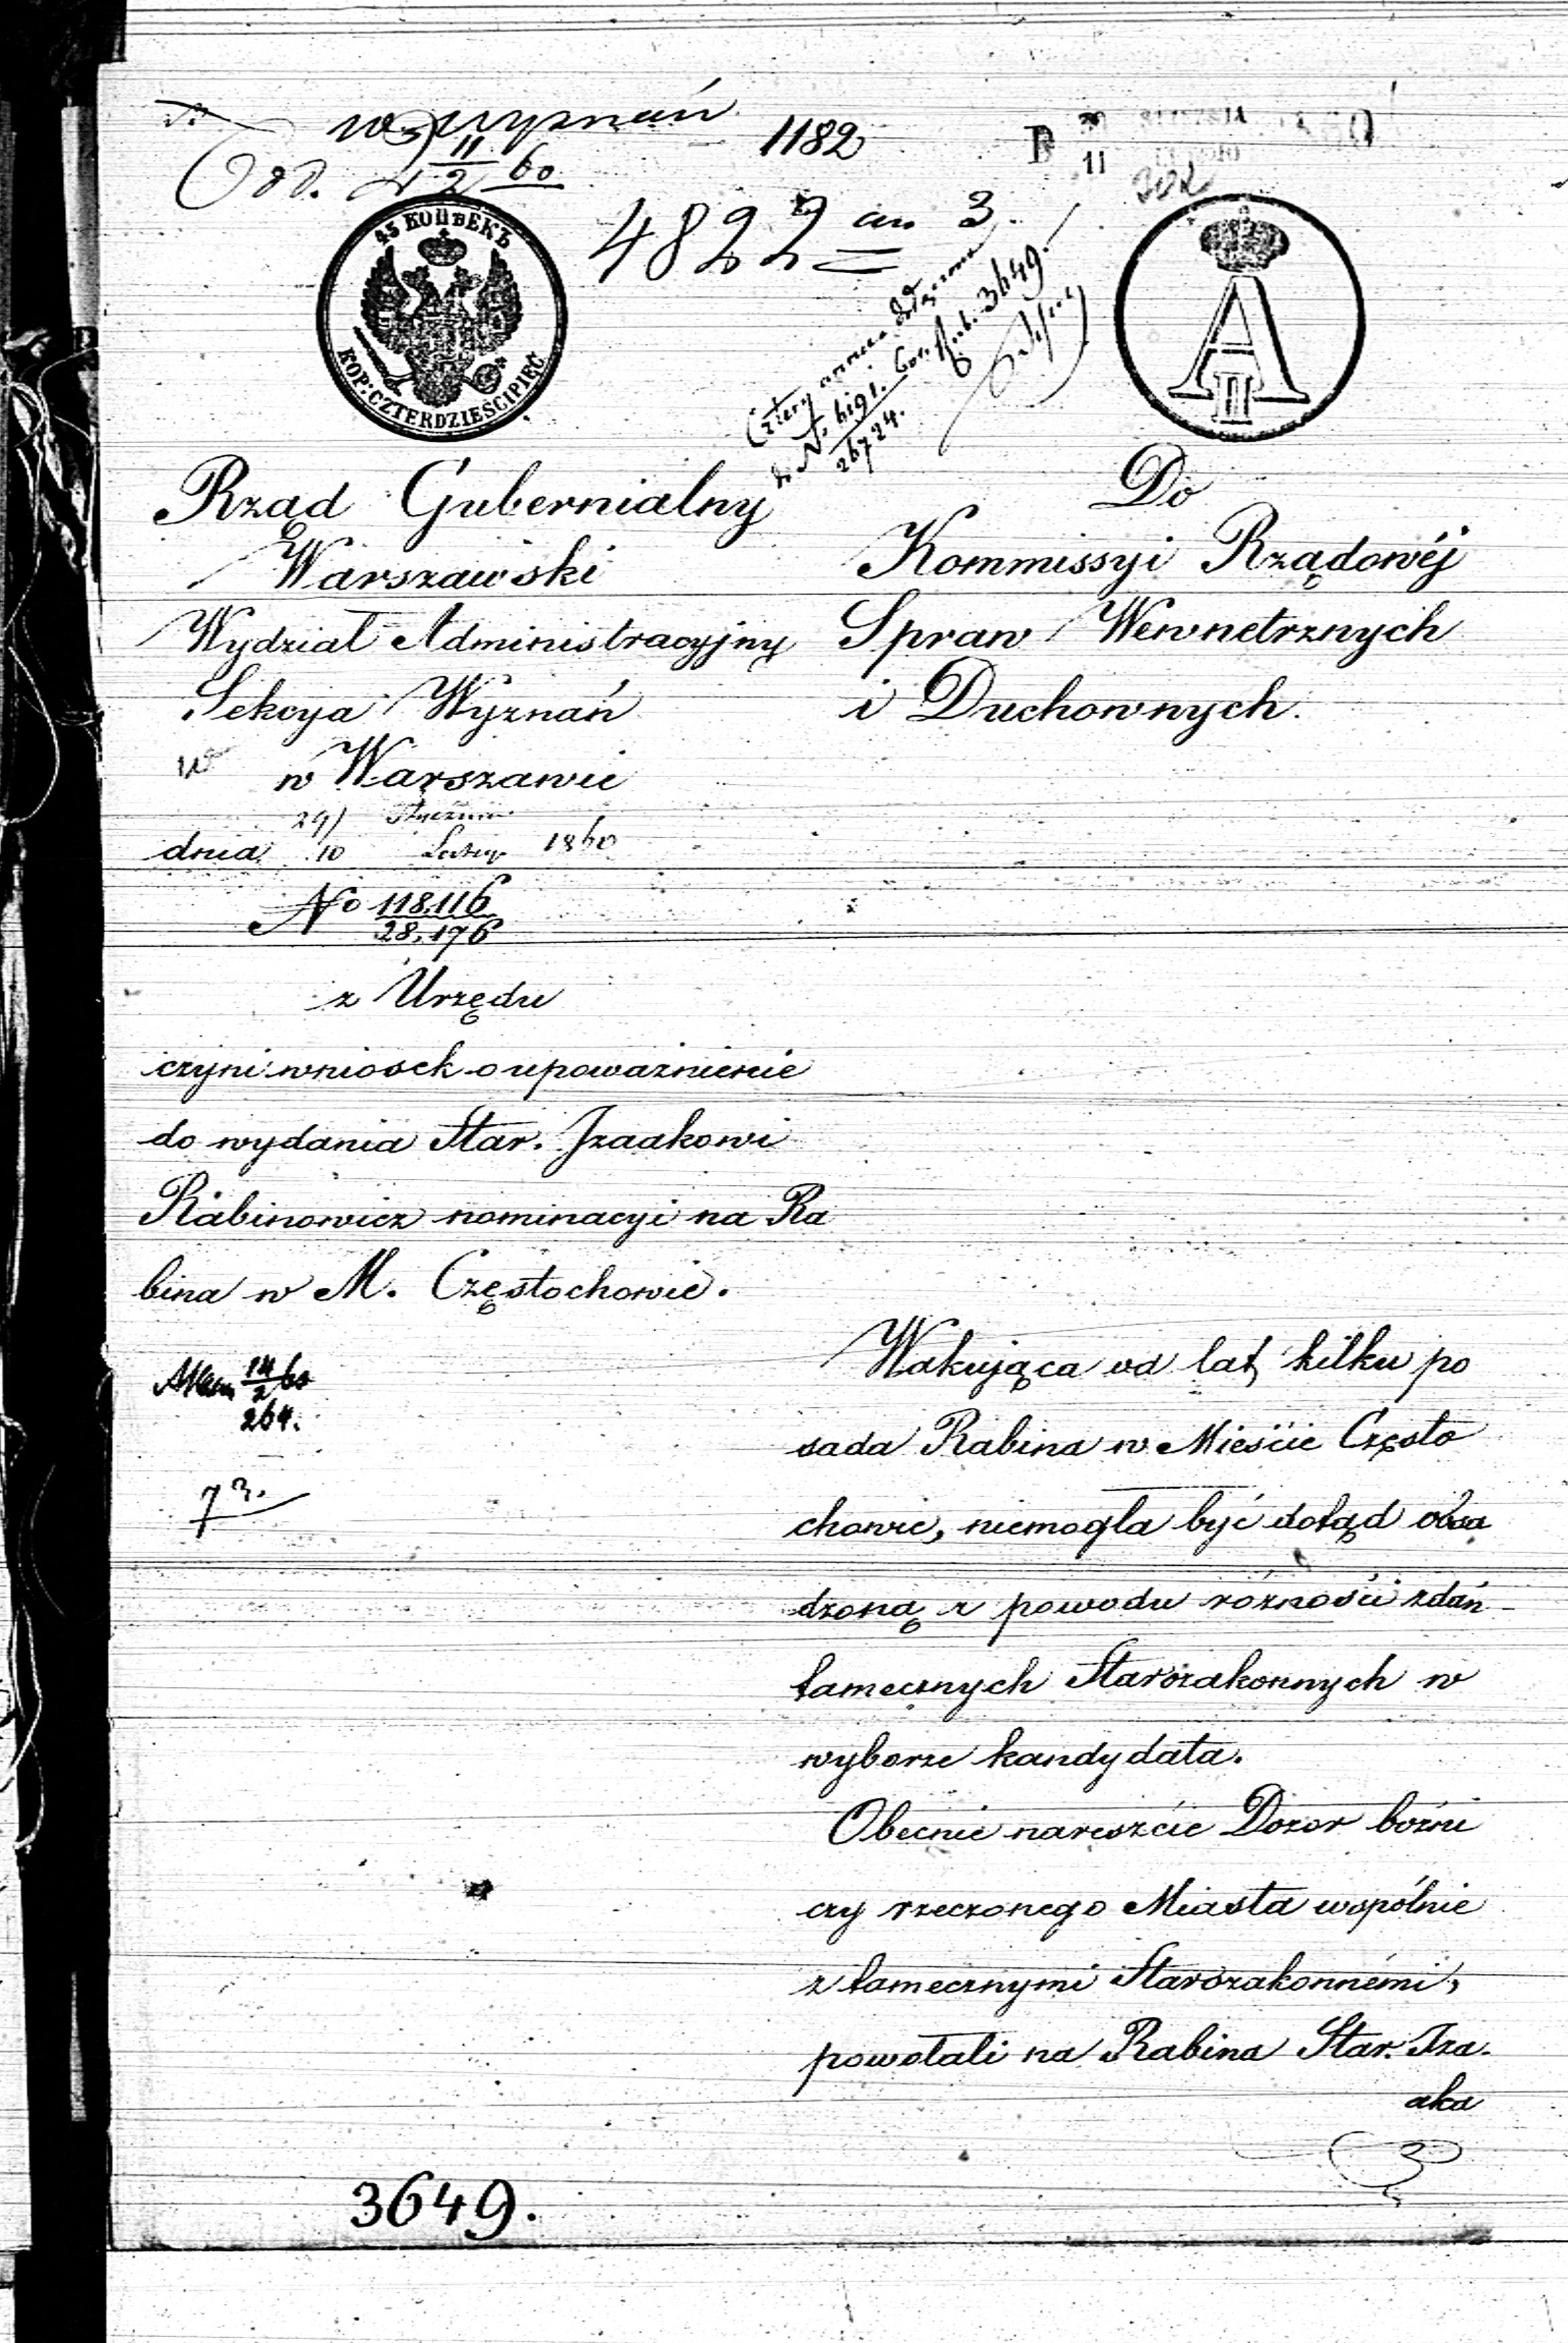 w. wyznań
1182
Odd. d 11/2 60
4822 an 3.
45 КОПѢЕКЪ
KOP: CZTERDZIEŚCI PIĘĆ
A II
Cztery annexa
do No 6191. 3649.
26724.
Rząd Gubernialny
Warszawski
Wydział Administracyjny
Sekcya Wyznań
w Warszawie
29/ Stycznia
dnia 10 Lutego 1860
No 118.116
28,176
z Urzędu
czyni wniosek o upoważnienie
do wydania Star. Izaakowi
Rabinowicz nominacyi na Ra
bina w M. Częstochowie.
14/2 60
264.
73.
Do
Kommissyi Rządowéj
Spraw Wewnetrznych
i Duchownych.
Wakująca od lat kilku po
sada Rabina w Mieście Często
chowie, niemogła być dotąd obsa
dzoną z powodu różności zdań
tamecznych Starozakonnych w
wyborze kandydata.
Obecnie nareszcie Dozor bożni
czy rzeczonego Miasta wspólnie
z tamecznymi Starozakonnémi,
powołali na Rabina Star. Iza.
aka
3649.